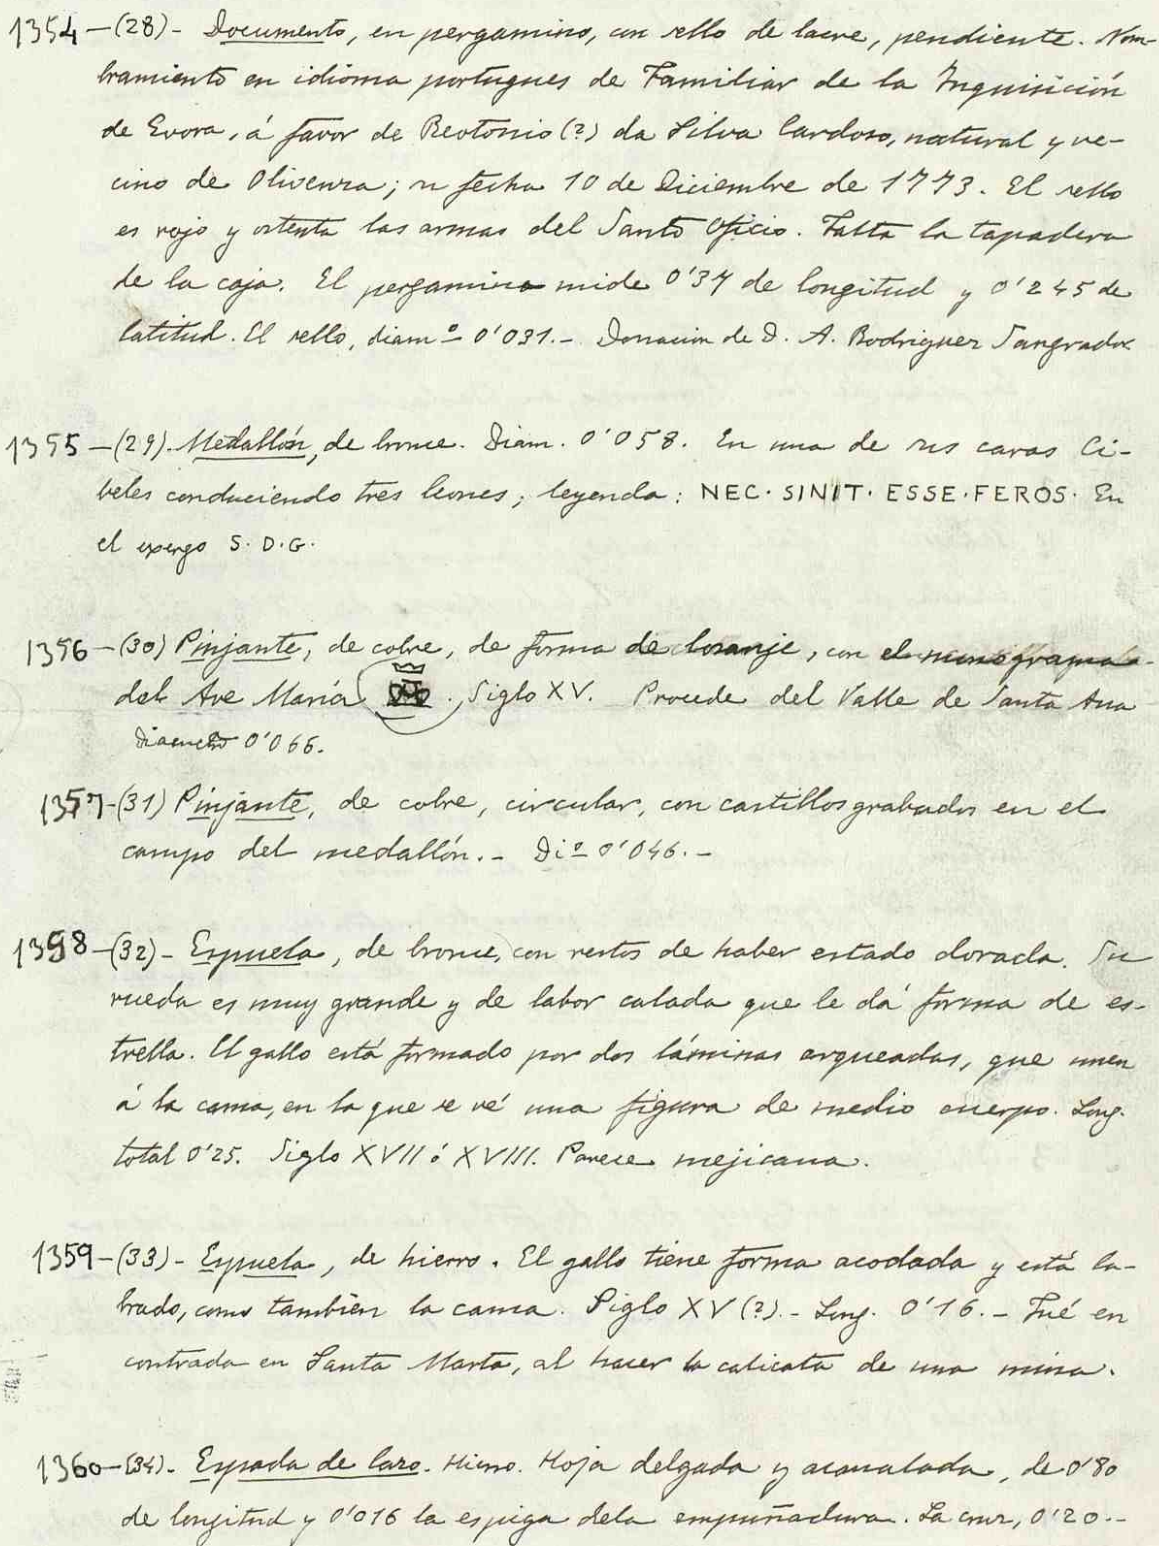 1354-(28)- Documento, en pergamino, con sello de lacre, pendiente. Nom-
bramiento en idioma portugues de Familiar de la Inquisición
de Evora, á favor de Reotonio (?) da Silva Cardoso, natural y ve-
cino de Olivenza; su fecha 10 de Diciembre de 1773. El sello
es rojo y ostenta las armas del Santo Oficio. Falta la tapadera
de la caja. El pergamino mide 0'37 de longitud y 0'245 de
latitud. El sello, diamº 0'031.- Donación de D. A. Rodriguez Sangrador
1355-(29). Medallón, de bronce. Diam. 0'058. En una de sus caras Ci-
beles conduciendo tres leones; leyenda: NEC·SINIT·ESSE·FEROS· En
el exergo S·D·G·
1356-(30) Pinjante, de cobre, de forma de losanje, con el monograma
del Ave María. Siglo XV. Procede del Valle de Santa Ana
Diametro 0'066.
1357-(31) Pinjante, de cobre, circular, con castillos grabados en el
campo del medallón.- Diº 0'046.-
1358-(32)- Espuela, de bronce, con restos de haber estado dorada. Su
rueda es muy grande y de labor calada que le dá forma de es-
trella. El gallo está formado por dos láminas arqueadas, que unen
á la cama, en la que se vé una figura de medio cuerpo. Long.
total 0'25. Siglo XVII ó XVIII. Parece mejicana.
1359-(33)- Espuela, de hierro. El gallo tiene forma acodada y está la-
brado, como tambien la cama. Siglo XV (?).- Long. 0'16.- Fué en
contrada en Santa Marta, al hacer la calicata de una mina.
1360-(34)- Espada de lazo. Hierro. Hoja delgada y acanalada, de 0'80
de longitud y 0'016 la espiga dela empuñadura. La cruz, 0'20.-